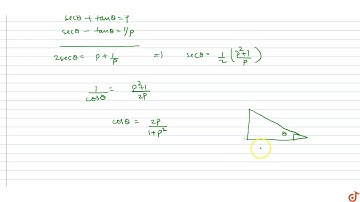 secθ + tanθ = p
secθ - tanθ = 1/p
2secθ = p + 1/p ⇒ secθ = 1/2 (p²+1/p)
1/cosθ = p²+1/2p
cosθ = 2p/1+p²
θ